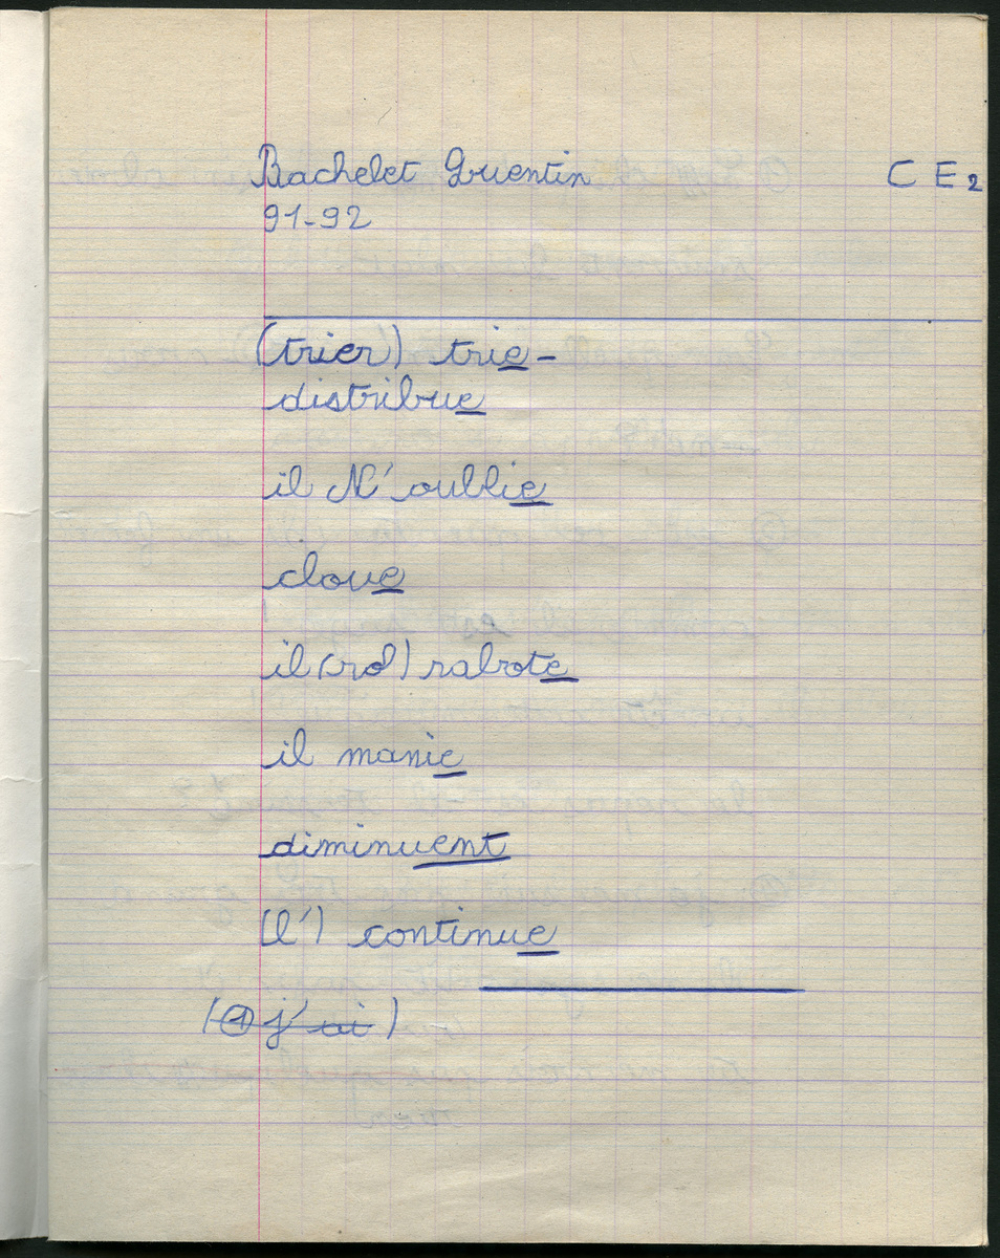 Bachelet Quentin CE2
91-92
(trier) trie-
distribue
il N'oublie
cloue
il (rol) rabote
il manie
diminuent
(l') continue
(1 j'ai)